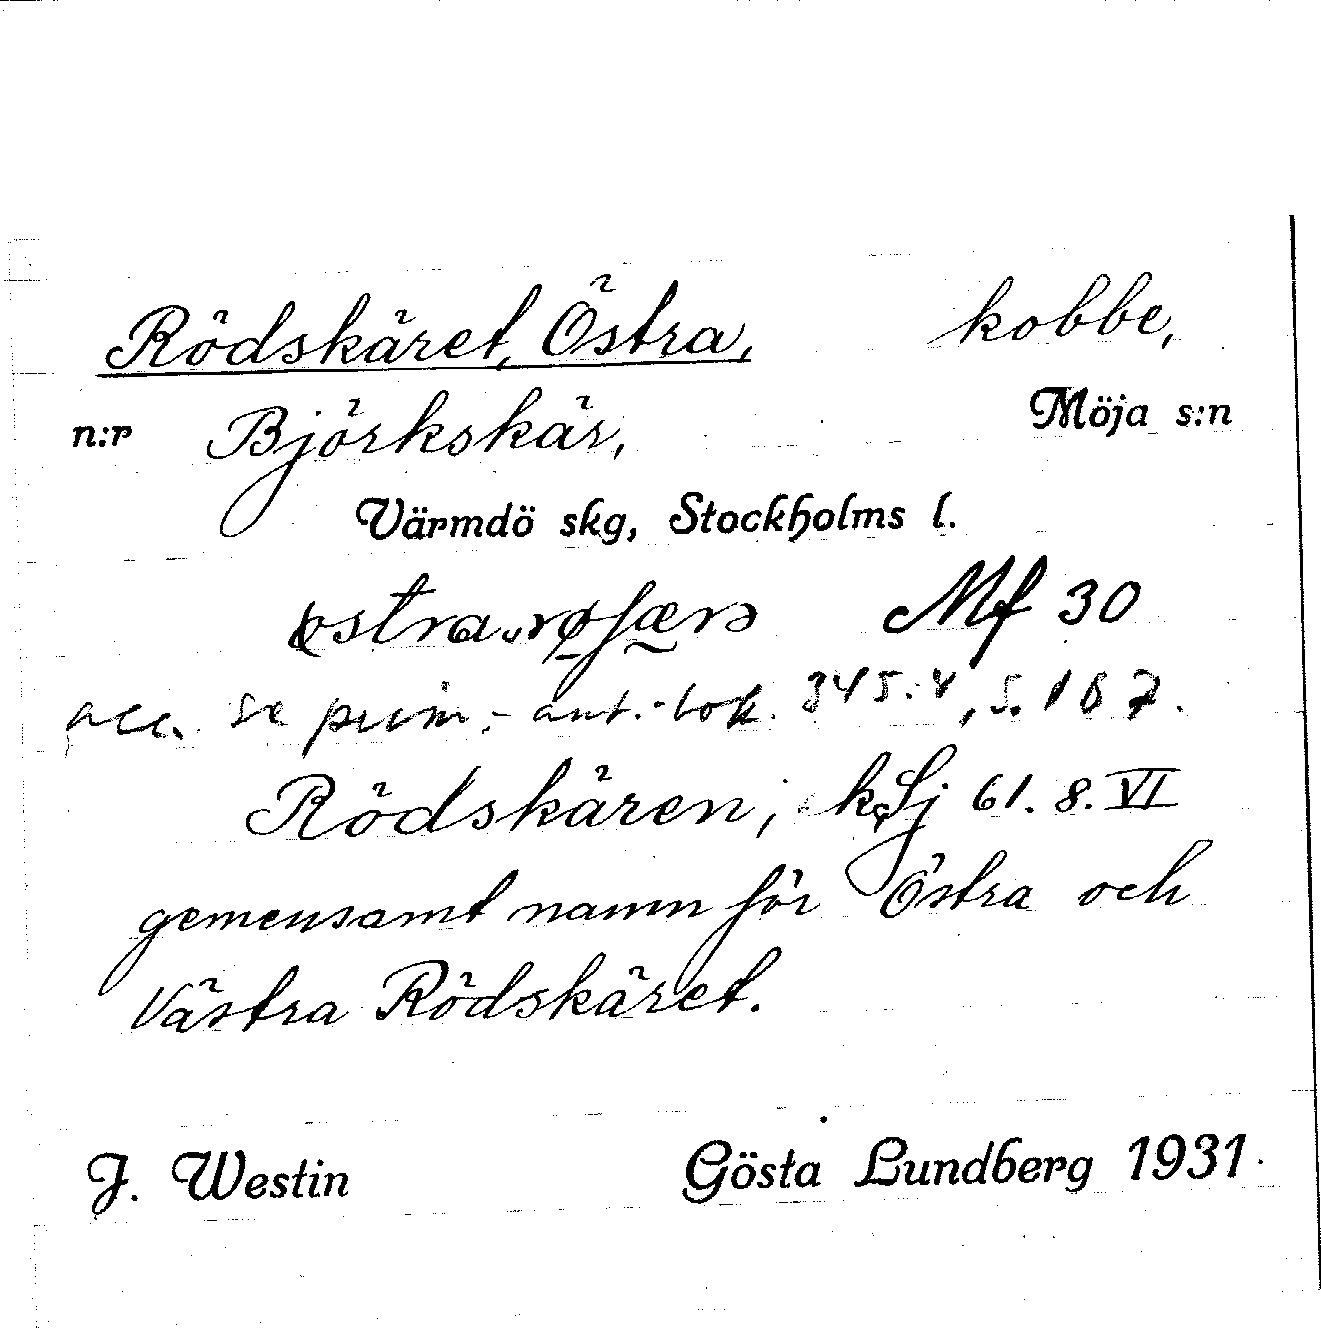 Rödskäret, Östra, kobbe,
n:r Björkskär, Möja s:n
Värmdö skg, Stockholms l.
Mf 30
acc. se prim.-ant.-bok. 345:4, s. 167.
Rödskären, kSj 61. 8. VI
gemensamt namn för Östra och
Västra Rödskäret.
J. Westin Gösta Lundberg 1931.